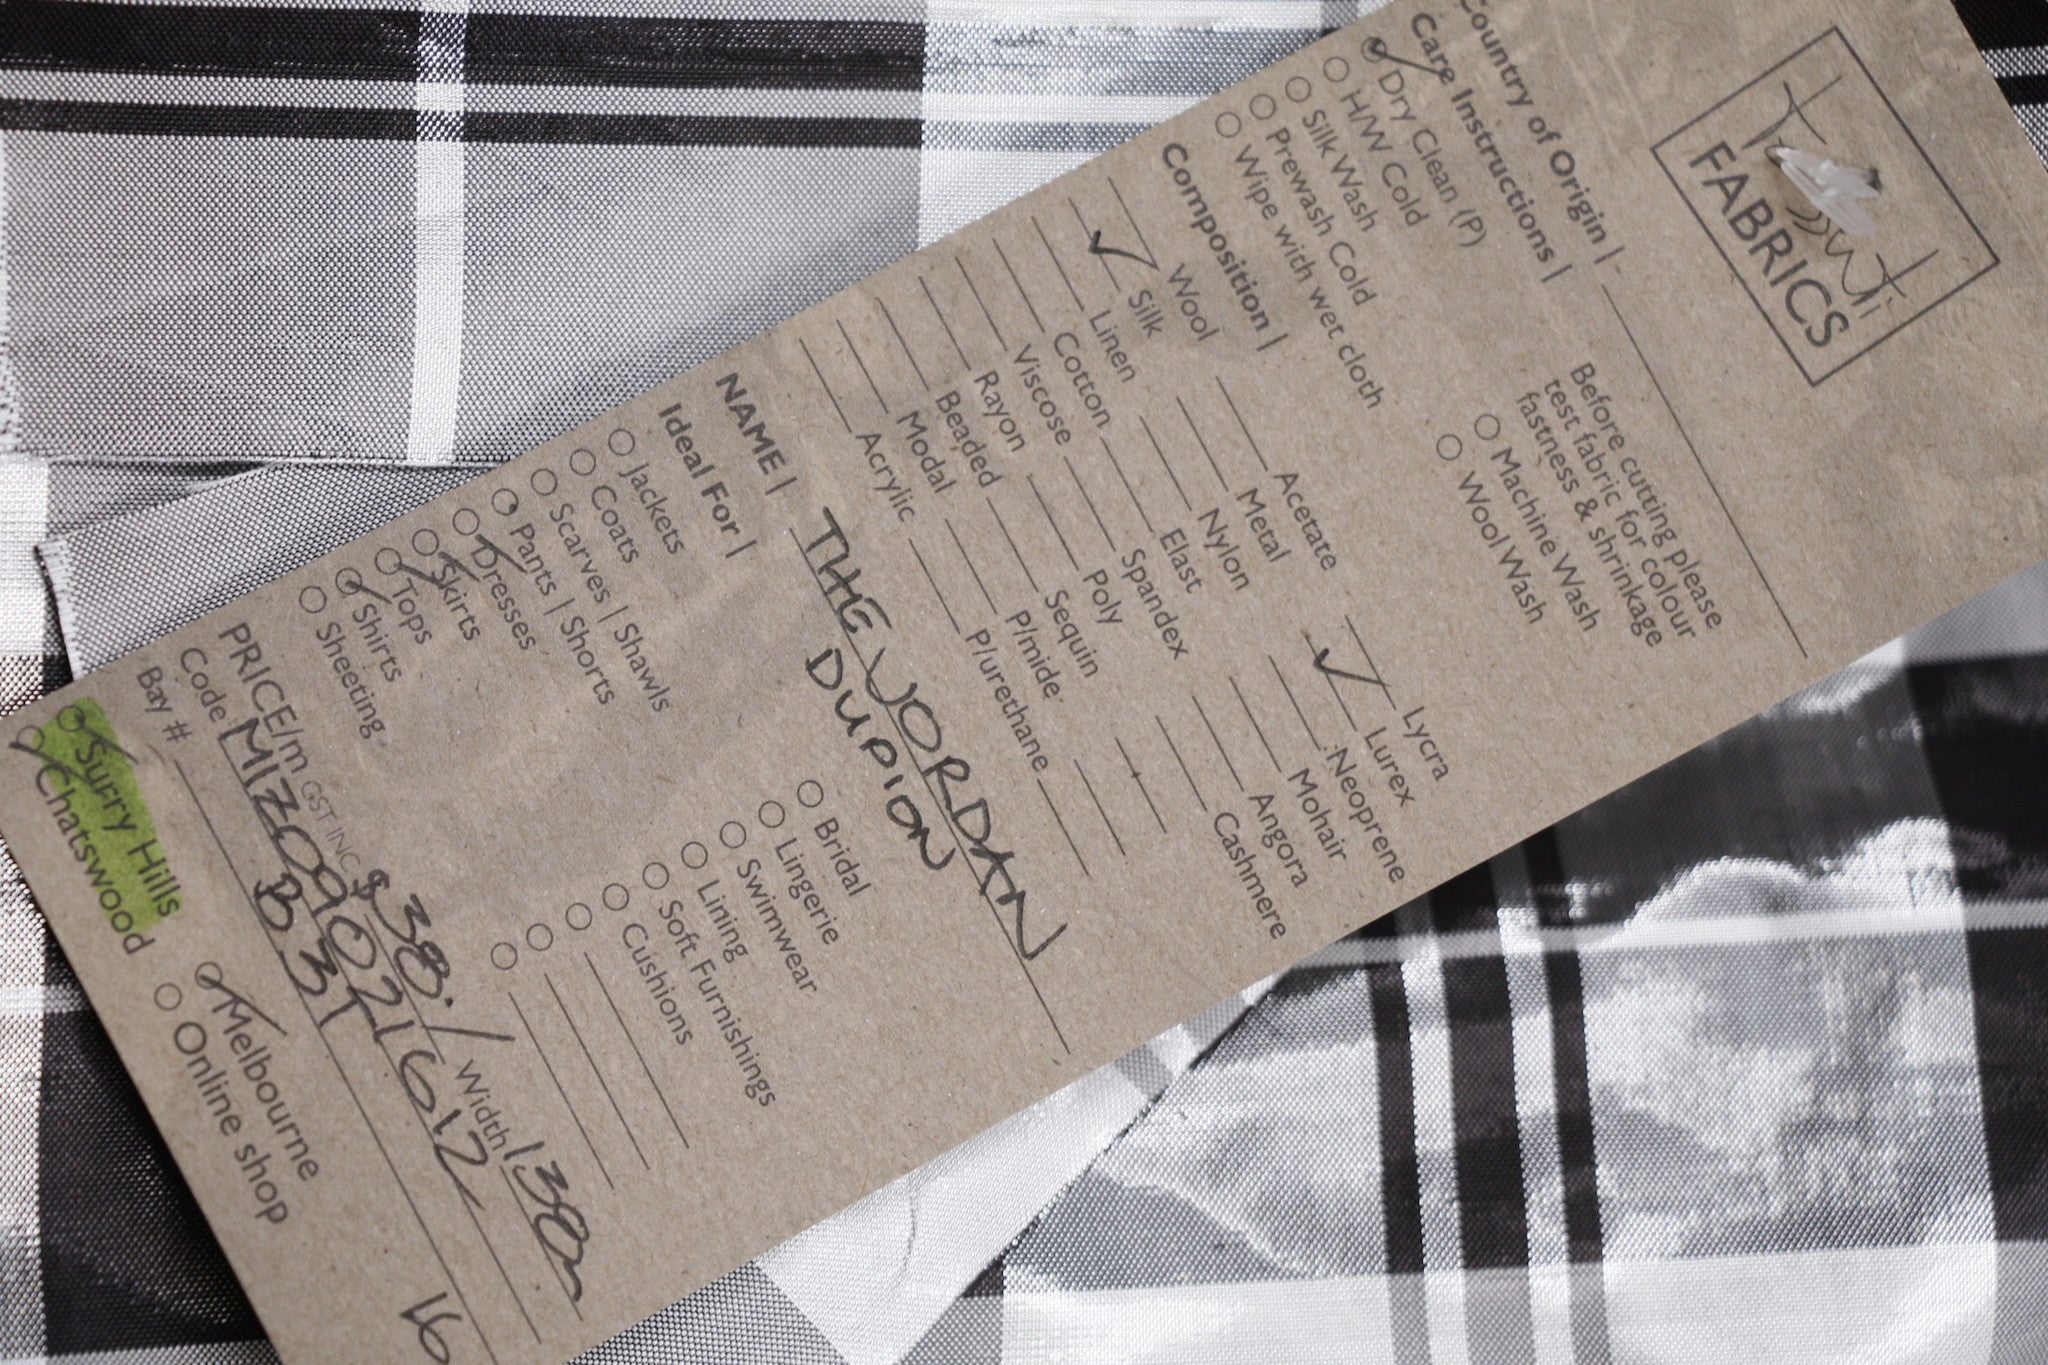 FABRICS
Country of Origin |
Care Instructions |
Dry Clean (P)
H/W Cold
Silk Wash
Prewash Cold
Wipe with wet cloth
Before cutting please
test fabric for colour
fastness & shrinkage
Machine Wash
Wool Wash
Composition |
Wool
Silk
Linen
Cotton
Viscose
Rayon
Beaded
Modal
Acrylic
Acetate
Metal
Nylon
Elast
Spandex
Poly
Sequin
P/mide
P/urethane
Lycra
Lurex
Neoprene
Mohair
Angora
Cashmere
NAME | THE JORDAN
DUPION
Ideal For |
Jackets
Coats
Scarves | Shawls
Pants | Shorts
Dresses
Skirts
Tops
Shirts
Sheeting
Bridal
Lingerie
Swimwear
Lining
Soft Furnishings
Cushions
PRICE/m GST INC $38./ Width 138cm
Code MIZ0909021612
Bay # B31 16
Surry Hills
Chatswood
Melbourne
Online shop